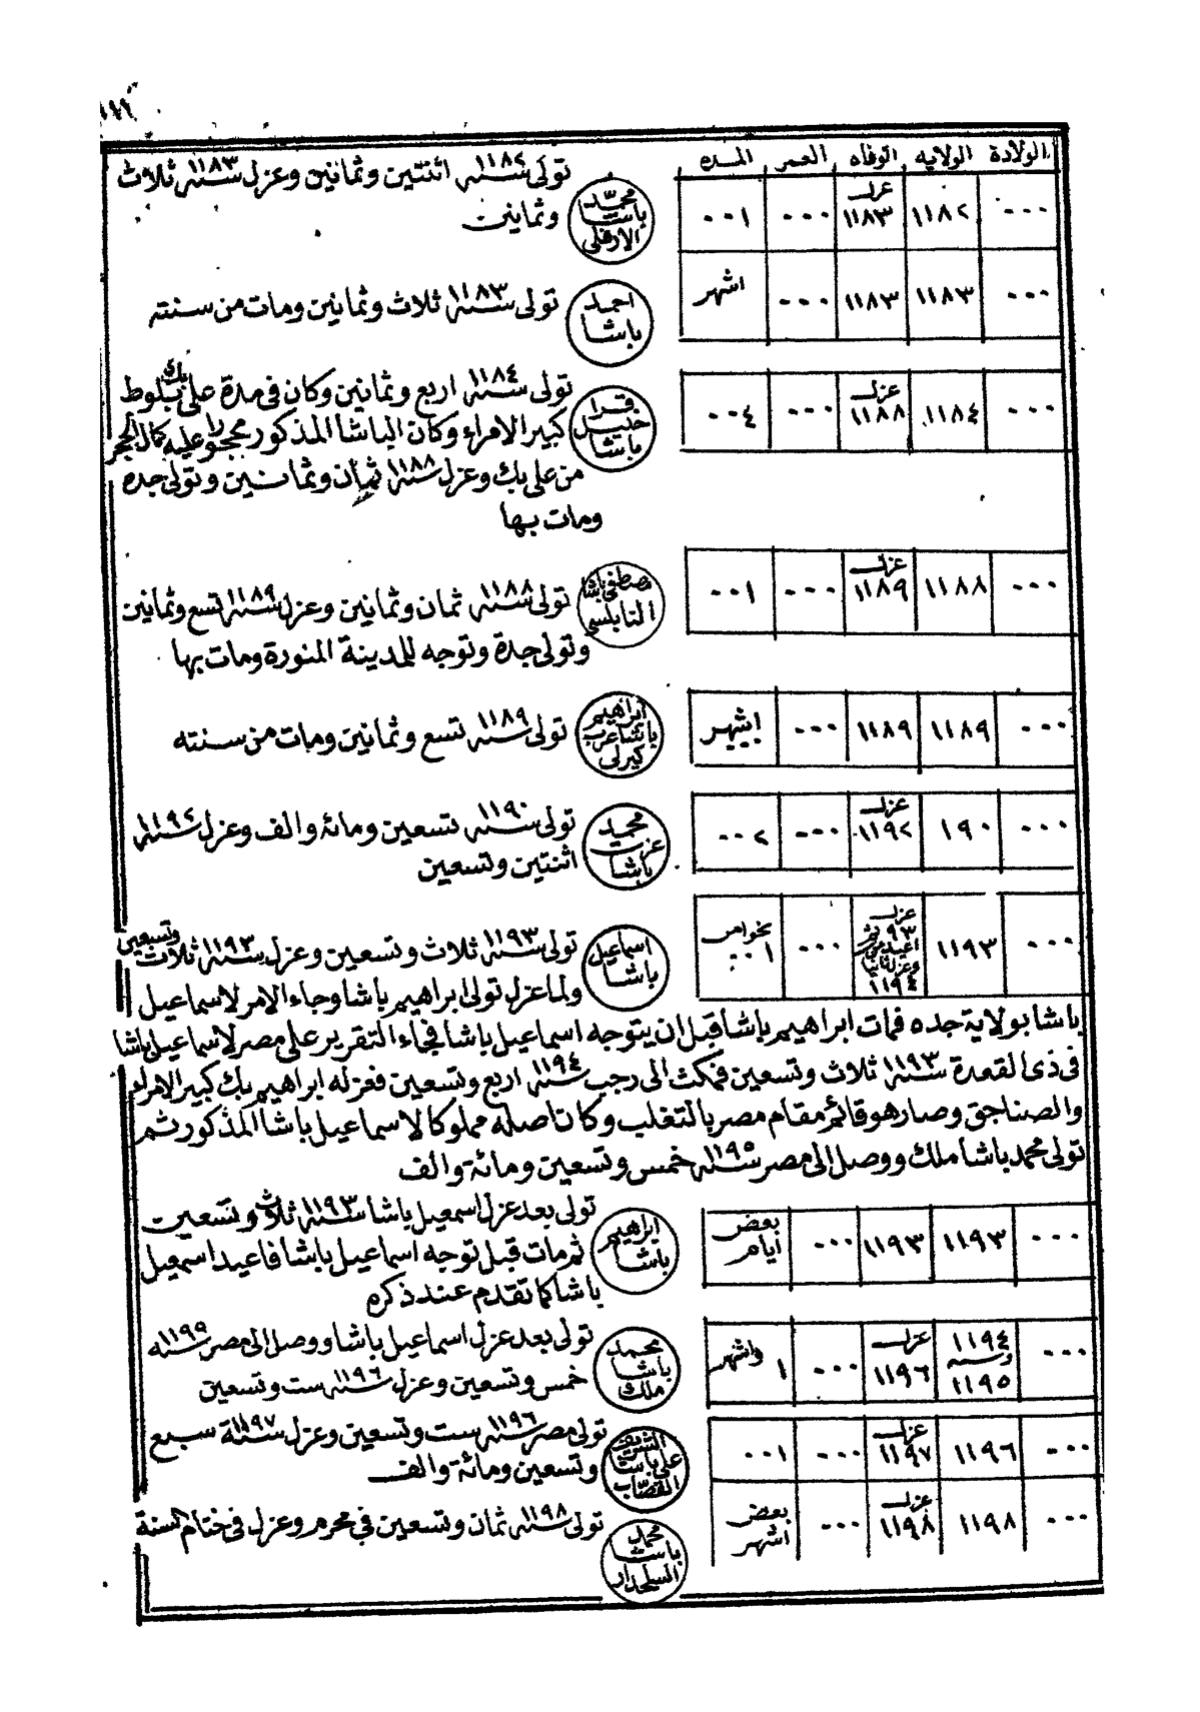 الولادة الولايه الوفاه العمر المده
٠٠٠ ١١٨٢ عزل ١١٨٣ ٠٠٠ ٠٠١
محمد باشا الارفلى
تولى سنه ١١٨٢ اثنتين وثمانين وعزل سنه ١١٨٣ ثلاث
وثمانين
٠٠٠ ١١٨٣ ١١٨٣ ٠٠٠ اشهر
احمد باشا
تولى سنه ١١٨٣ ثلاث وثمانين ومات من سنته
٠٠٠ ١١٨٤ عزل ١١٨٨ ٠٠٠ ٠٠٤
قرا خليل باشا
تولى سنه ١١٨٤ اربع وثمانين وكان فى مدة على بك بلوط
كبير الامراء وكان الباشا المذكور محجورا عليه كمال الحجر
من على بك وعزل سنه ١١٨٨ ثمان وثمانين وتولى جده
ومات بها
٠٠٠ ١١٨٨ عزل ١١٨٩ ٠٠٠ ٠٠١
مصطفى باشا النابلسى
تولى سنه ١١٨٨ ثمان وثمانين وعزل سنه ١١٨٩ تسع وثمانين
وتولى جدة وتوجه للمدينة المنورة ومات بها
٠٠٠ ١١٨٩ ١١٨٩ ٠٠٠ اشهر
ابراهيم باشا عرب كيرلى
تولى سنه ١١٨٩ تسع وثمانين ومات من سنته
٠٠٠ ١٩٠ عزل ١١٩٢ ٠٠٠ ٠٠٢
محمد عزت باشا
تولى سنه ١١٩٠ تسعين ومائة والف وعزل سنه ١١٩٢
اثنتين وتسعين
٠٠٠ ١١٩٣ عزل ٩٣ ثم اعيد وعزل ثانيا ١١٩٤ ٠٠٠ نحوامن ٠٠١
اسماعيل باشا
تولى سنه ١١٩٣ ثلاث وتسعين وعزل سنه ١١٩٣ ثلاث وتسعين
ولما عزل تولى ابراهيم باشا وجاء الامر لاسماعيل
باشا بولاية جده فمات ابراهيم باشا قبل ان يتوجه اسماعيل باشا فجاء التقرير على مصر لاسماعيل باشا
فى ذى القعدة سنه ١١٩٣ ثلاث وتسعين فمكث الى رجب سنه ١١٩٤ اربع وتسعين فعزله ابراهيم بك كبير الامراء
والصناجق وصار هو قائم مقام مصر بالتغلب وكان اصله مملوكا لاسماعيل باشا المذكور ثم
تولى محمد باشا ملك ووصل الى مصر سنه ١١٩٥ خمس وتسعين ومائة والف
٠٠٠ ١١٩٣ ١١٩٣ ٠٠٠ بعض ايام
ابراهيم باشا
تولى بعد عزل اسمعيل باشا سنه ١١٩٣ ثلاث وتسعين
ثم مات قبل توجه اسماعيل باشا فاعيد اسمعيل
باشا كما تقدم عند ذكره
٠٠٠ ١١٩٤ وسنه ١١٩٥ عزل ١١٩٦ ٠٠٠ ١ واشهر
محمد باشا ملك
تولى بعد عزل اسماعيل باشا ووصل الى مصر سنه ١١٩٥
خمس وتسعين وعزل سنه ١١٩٦ ست وتسعين
٠٠٠ ١١٩٦ عزل ١١٩٧ ٠٠٠ ٠٠١
الشريف على باشا القصاب
تولى مصر سنه ١١٩٦ ست وتسعين وعزل سنة ١١٩٧ سبع
وتسعين ومائة والف
٠٠٠ ١١٩٨ عزل ١١٩٨ ٠٠٠ بعض اشهر
محمد باشا السلحدار
تولى سنه ١١٩٨ ثمان وتسعين فى محرم وعزل فى ختام السنة